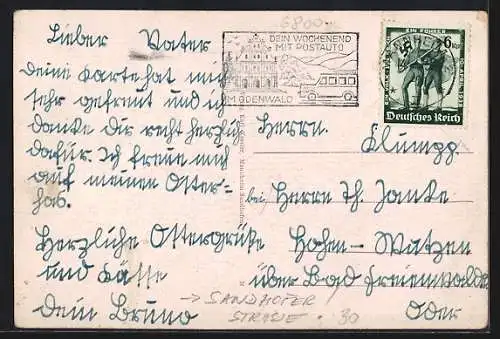 6800
Lieber Vater
Deine Karte hat mich
sehr gefreut und ich
danke Dir recht herzlich
dafür. Ich freue mich
auf meinen Oster=
has.
Herzliche Ostergrüße
und Küsse
Dein Bruno
DEIN WOCHENEND
MIT POSTAUTO
IM ODENWALD
6
Deutsches Reich
Herrn
Klumpp
bei Herrn Th. Janke
Hohen-Wutzen
über Bad Freienwalde
Oder
→ SANDHOFER
STRASSE 30